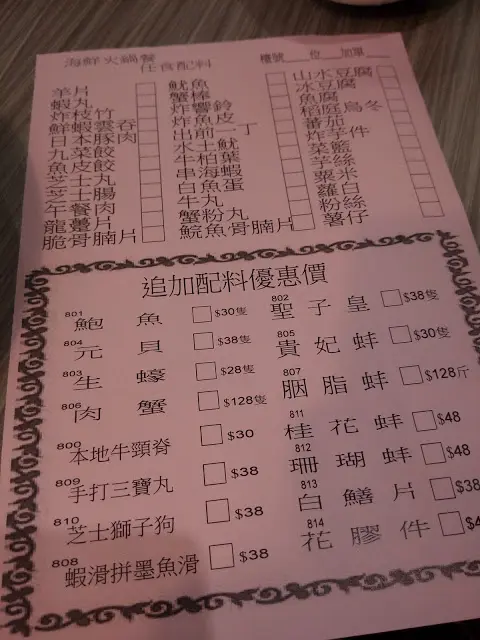 海鮮火鍋餐
任食配料
檯號 位 加單
羊片
蝦丸
炸枝竹
鮮蝦雲吞
日本豚肉
九菜餃
魚皮餃
芝士丸
芝士腸
午餐肉
龍躉片
脆骨腩片
魷魚
蟹棒
炸響鈴
炸魚皮
出前一丁
水土魷
牛柏葉
串海蝦
白魚蛋
牛丸
蟹粉丸
鯇魚骨腩片
山水豆腐
冰豆腐
魚腐
稻庭烏冬
番茄
炸芋件
菜籃
芋絲
粟米
蘿白
粉絲
薯仔
追加配料優惠價
801 鮑魚 $30隻
804 元貝 $38隻
803 生蠔 $28隻
806 肉蟹 $128隻
800 本地牛頸脊 $30
809 手打三寶丸 $38
810 芝士獅子狗 $38
808 蝦滑拼墨魚滑 $38
802 聖子皇 $38隻
805 貴妃蚌 $30隻
807 胭脂蚌 $128斤
811 桂花蚌 $48
812 珊瑚蚌 $48
813 白鱔片 $38
814 花膠件